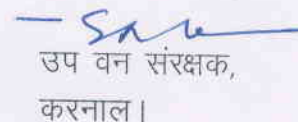 उप वन संरक्षक,
करनाल।